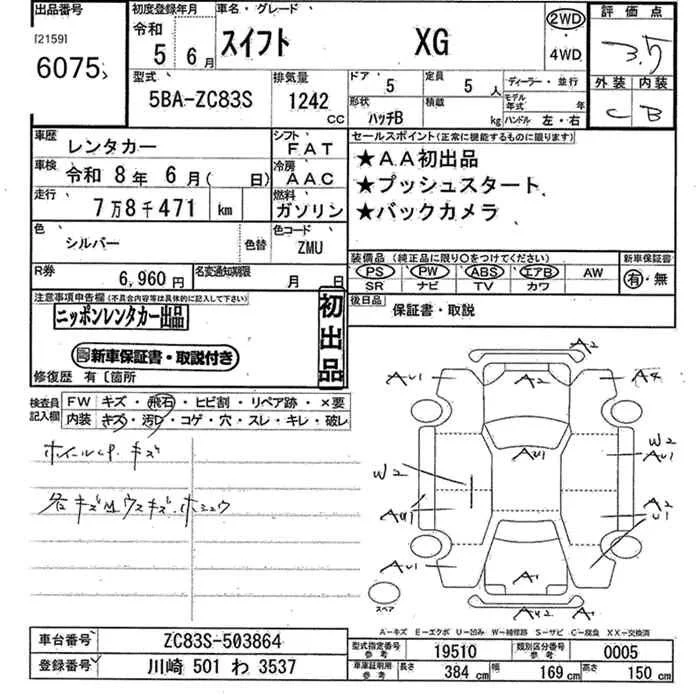 出品番号
[2159]
6075
初度登録年月
令和
5年 6月
車名・グレード
スイフト XG
2WD
・
4WD
評価点
3.5
型式
5BA-ZC83S
排気量
1242
CC
ドア
5
定員
5人
形状
ハッチB
積載
kg
ディーラー・並行
モデル年式 年
ハンドル 左・右
外装 内装
C B
車歴
レンタカー
シフト
FAT
車検
令和 8年 6月( 日)
冷房
AAC
走行
7万8千471 km
燃料
ガソリン
色
シルバー
色替
色コード
ZMU
R券
6,960円
名変通知期限
月 日
セールスポイント(正常に機能するものに限ります)
★AA初出品
★プッシュスタート
★バックカメラ
装備品(純正品に限り○をつけてください)
PS PW ABS エアB AW
SR ナビ TV カワ
新車保証書
有・無
後日品
保証書・取説
注意事項申告欄(不具合内容等は具体的に記入して下さい)
ニッポンレンタカー出品
新車保証書・取説付き
初出品
修復歴 有〔箇所
検査員
記入欄
FW キズ・飛石・ヒビ割・リペア跡・×要
内装 キズ・汚レ・コゲ・穴・スレ・キレ・破レ
ホイールCP. キズ
各キズM ウスキズ・ホシュウ
A2
AU1 A2 A4
AU1
W2
AU1
W2
AU1
A2
U1
AU1 A1
AU2 A1
スペア
A-キズ E-エクボ U-凹み W-補修跡 S-サビ C-腐食 XX-交換済
車台番号
ZC83S-503864
登録番号
川崎 501 わ 3537
型式指定番号
参考
19510
類別区分番号
参考
0005
車庫証明用
参考
長さ 384cm 幅 169cm 高さ 150cm